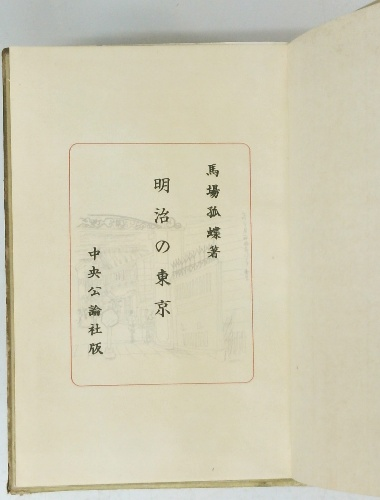 馬場孤蝶著
明治の東京
中央公論社版